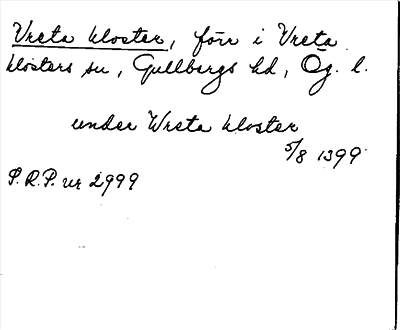 Vreta kloster, förr i Vreta
klosters sn, Gullbergs hd, Ög. l.
under Wreta kloster
5/8 1399
S.R.P. nr 2999